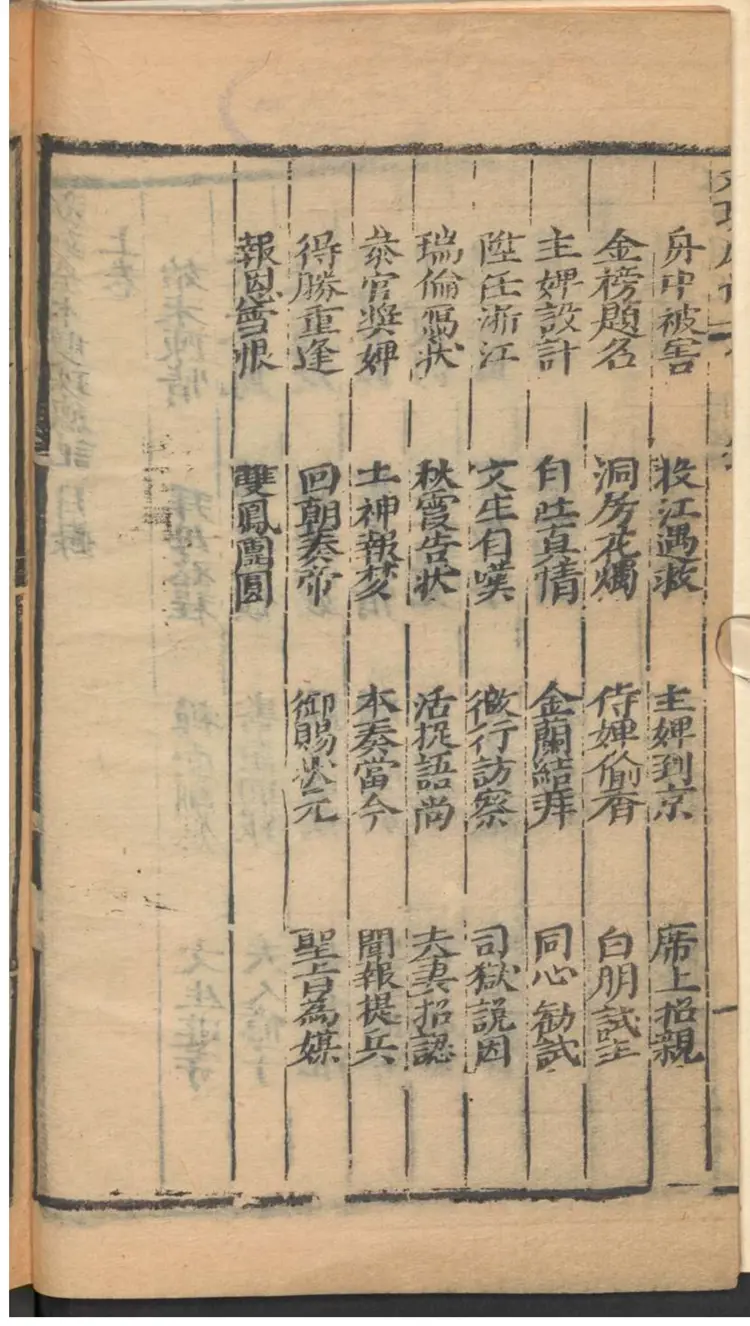 舟中被害 投江遇救 主婢到京 席上招親
金榜題名 洞房花燭 侍婢偷看 白朋試
主婢設計 自吐真情 金蘭結拜 同心勸試
陞任浙江 文生自嘆 微行訪察 司獄說因
瑞倫寫狀 秋霞告狀 活捉語尚 夫妻招認
叅官獎婢 土神報梦 本奏當今 聞報提兵
得勝重逢 回朝奏帝 御賜狀元 聖旨為媒
報恩雪恨 雙鳳團圓